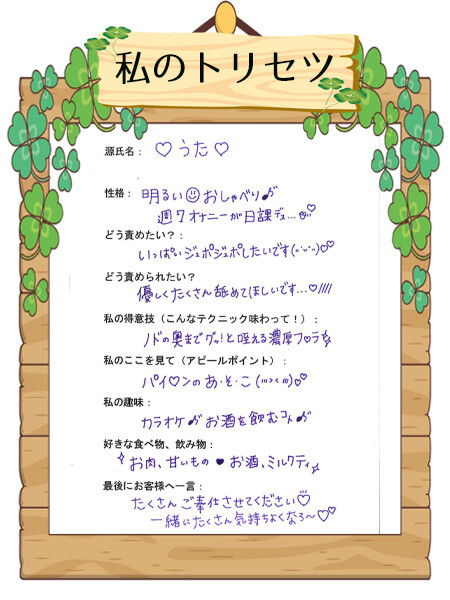 私のトリセツ
源氏名： ♡うた♡
性格： 明るい☺おしゃべり♪
週7オナニーが日課デス…♡
どう責めたい？：
いっぱいジュポジュポしたいです(・・)♡♡
どう責められたい？
優しくたくさん舐めてほしいです…♡////
私の得意技（こんなテクニック味わって！）：
ノドの奥までグッ!と咥える濃厚フ○ラ☆
私のここを見て（アピールポイント）：
パイ♡ンのあ・そ・こ(///>< ///)♡♡
私の趣味：
カラオケ♪お酒を飲むコト♪
好きな食べ物、飲み物：
お肉、甘いもの♥お酒、ミルクティ
最後にお客様へ一言：
たくさんご奉仕させてください♡
一緒にたくさん気持ちよくなろ〜♡♡